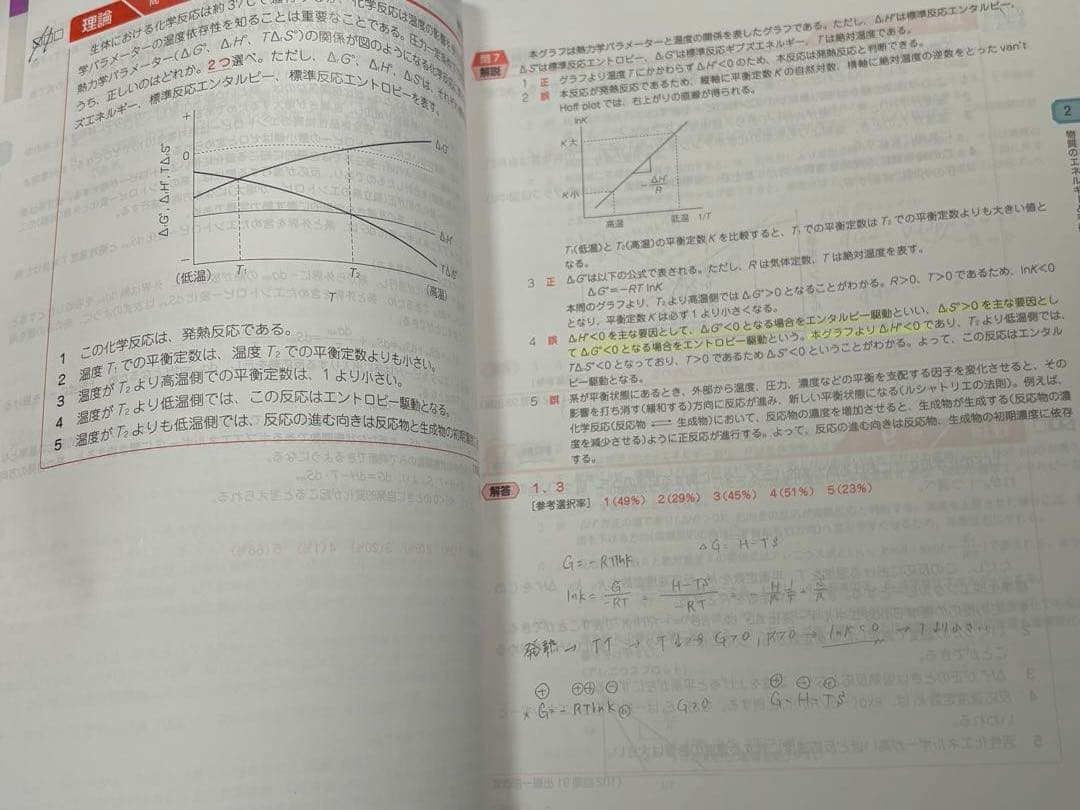 理論
問
生体における化学反応は約37℃で進行するが、化学反応は温度の影響を
学パラメーターの温度依存性を知ることは重要なことである。圧力一定
熱力学パラメーター(ΔrG°、ΔrH°、TΔrS°)の関係が図のようになる化学反応
うち、正しいのはどれか。2つ選べ。ただし、ΔrG°、ΔrH°、ΔrS°は、それぞれ
ズエネルギー、標準反応エンタルピー、標準反応エントロピーを表す。
+
0
−
ΔrG°, ΔrH°, TΔrS°
ΔrG°
ΔrH°
TΔrS°
T1
T2
(低温)
T
(高温)
1 この化学反応は、発熱反応である。
2 温度T1での平衡定数は、温度T2での平衡定数よりも小さい。
3 温度がT2より高温側での平衡定数は、1より小さい。
4 温度がT2より低温側では、この反応はエントロピー駆動となる。
5 温度がT2よりも低温側では、反応の進む向きは反応物と生成物の初期濃度に
問7
解説
本グラフは熱力学パラメーターと温度の関係を表したグラフである。ただし、ΔrH°は標準反応エンタルピー、
ΔrS°は標準反応エントロピー、ΔrG°は標準反応ギブズエネルギー、Tは絶対温度である。
1 正 グラフより温度TにかかわらずΔrH°<0のため、本反応は発熱反応と判断できる。
2 誤 本反応が発熱反応であるため、縦軸に平衡定数Kの自然対数、横軸に絶対温度の逆数をとったvan't
Hoff plotでは、右上がりの直線が得られる。
lnK
K大
K小
−ΔrH°/R
高温
低温
1/T
T1(低温)とT2(高温)の平衡定数Kを比較すると、T1での平衡定数はT2での平衡定数よりも大きい値と
なる。
3 正 ΔrG°は以下の公式で表される。ただし、Rは気体定数、Tは絶対温度を表す。
ΔrG°=−RT lnK
本問のグラフより、T2より高温側ではΔrG°>0となることがわかる。R>0、T>0であるため、lnK<0
となり、平衡定数Kは必ず1より小さくなる。
4 誤 ΔrH°<0を主な要因として、ΔrG°<0となる場合をエンタルピー駆動といい、ΔrS°>0を主な要因とし
てΔrG°<0となる場合をエントロピー駆動という。本グラフよりΔrH°<0であり、T2より低温側では、
TΔrS°<0となっており、T>0であるためΔrS°<0ということがわかる。よって、この反応はエンタル
ピー駆動となる。
5 誤 系が平衡状態にあるとき、外部から温度、圧力、濃度などの平衡を支配する因子を変化させると、その
影響を打ち消す(緩和する)方向に反応が進み、新しい平衡状態になる(ルシャトリエの法則)。例えば、
化学反応(反応物 ⇌ 生成物)において、反応物の濃度を増加させると、生成物が生成する(反応物の濃
度を減少させる)ように正反応が進行する。よって、反応の進む向きは反応物、生成物の初期濃度に依存
する。
解答 1、3
[参考選択率] 1(49%) 2(29%) 3(45%) 4(51%) 5(23%)
ΔG = H−TS
G = −RTlnK
lnK = G/−RT = H−TS/−RT = −H/R 1/T + S/R
発熱 → T↑ → G>0, R>0 → lnK<0 → 1より小さい
⊕ ⊕⊕ ⊖ ⊕ ⊖ ⊕
G = −RTlnK G>0 G=H−TS
2